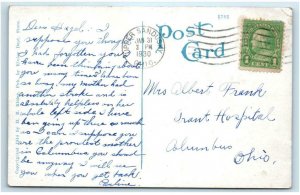 5765
Post
Card
UPPER SANDUSKY
JAN 31
3 PM
1930
OHIO.
1 CENT 1
Dear Hazel:- I
suppose you think
I had forgotten you
have been thinking about
you many times
my mother had
another stroke and is
absolutely helpless on her
whole left side. I have
been going up there so much
as I can I suppose you
are the proudest mother
in Columbus you should
be anyway. I will see
you when you get back.
Mrs Albert Frank
Grant Hospital
Columbus
Ohio.